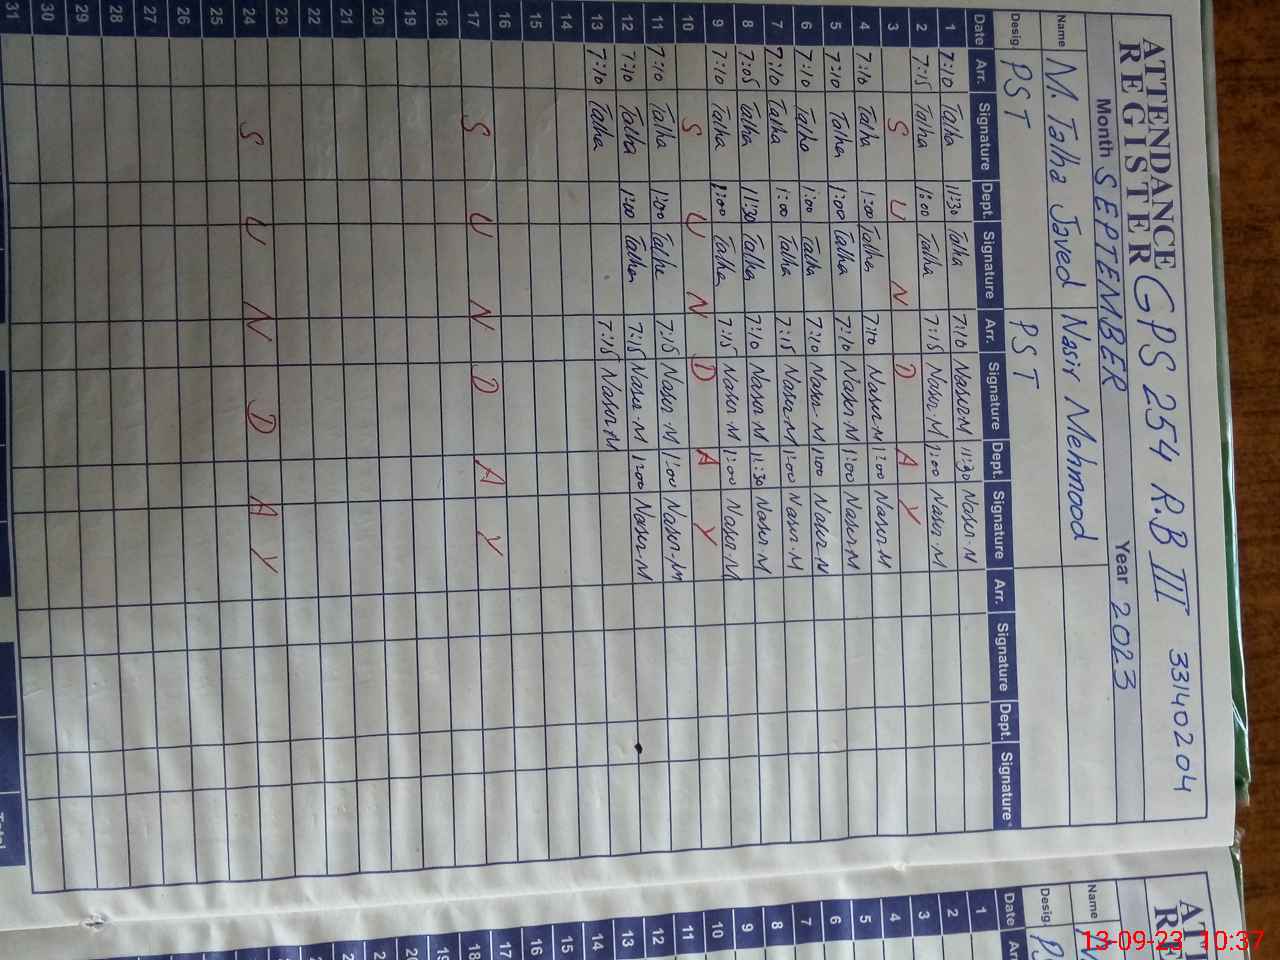 ATTENDANCE REGISTER GPS 254 R.B III 33140204
Month SEPTEMBER Year 2023
Name M. Talha Javed Nasir Mehmood
Desig. PST PST
Date Arr. Signature Dept. Signature Arr. Signature Dept. Signature Arr. Signature Dept. Signature
1 7:10 Talha 11:30 Talha 7:10 Nasir M 11:30 Nasir-M
2 7:15 Talha 1:00 Talha 7:15 Nasir-M 1:00 Nasir-M
3 S U N D A Y
4 7:10 Talha 1:00 Talha 7:10 Nasir-M 1:00 Nasir-M
5 7:10 Talha 1:00 Talha 7:10 Nasir-M 1:00 Nasir-M
6 7:10 Talha 1:00 Talha 7:10 Nasir-M 1:00 Nasir-M
7 7:10 Talha 1:00 Talha 7:15 Nasir-M 1:00 Nasir-M
8 7:05 Talha 11:30 Talha 7:10 Nasir-M 11:30 Nasir-M
9 7:10 Talha 1:00 Talha 7:15 Nasir-M 1:00 Nasir-M
10 S U N D A Y
11 7:10 Talha 1:00 Talha 7:15 Nasir-M 1:00 Nasir-M
12 7:10 Talha 1:00 Talha 7:15 Nasir-M 1:00 Nasir-M
13 7:10 Talha 7:15 Nasir-M
14
15
16
17 S U N D A Y
18
19
20
21
22
23
24 S U N D A Y
25
26
27
28
29
30
31
Total
Name
Desig.
Date
1
2
3
4
5
6
7
8
9
10
11
12
13
14
15
16
17
18
19
20
13-09-23 10:37